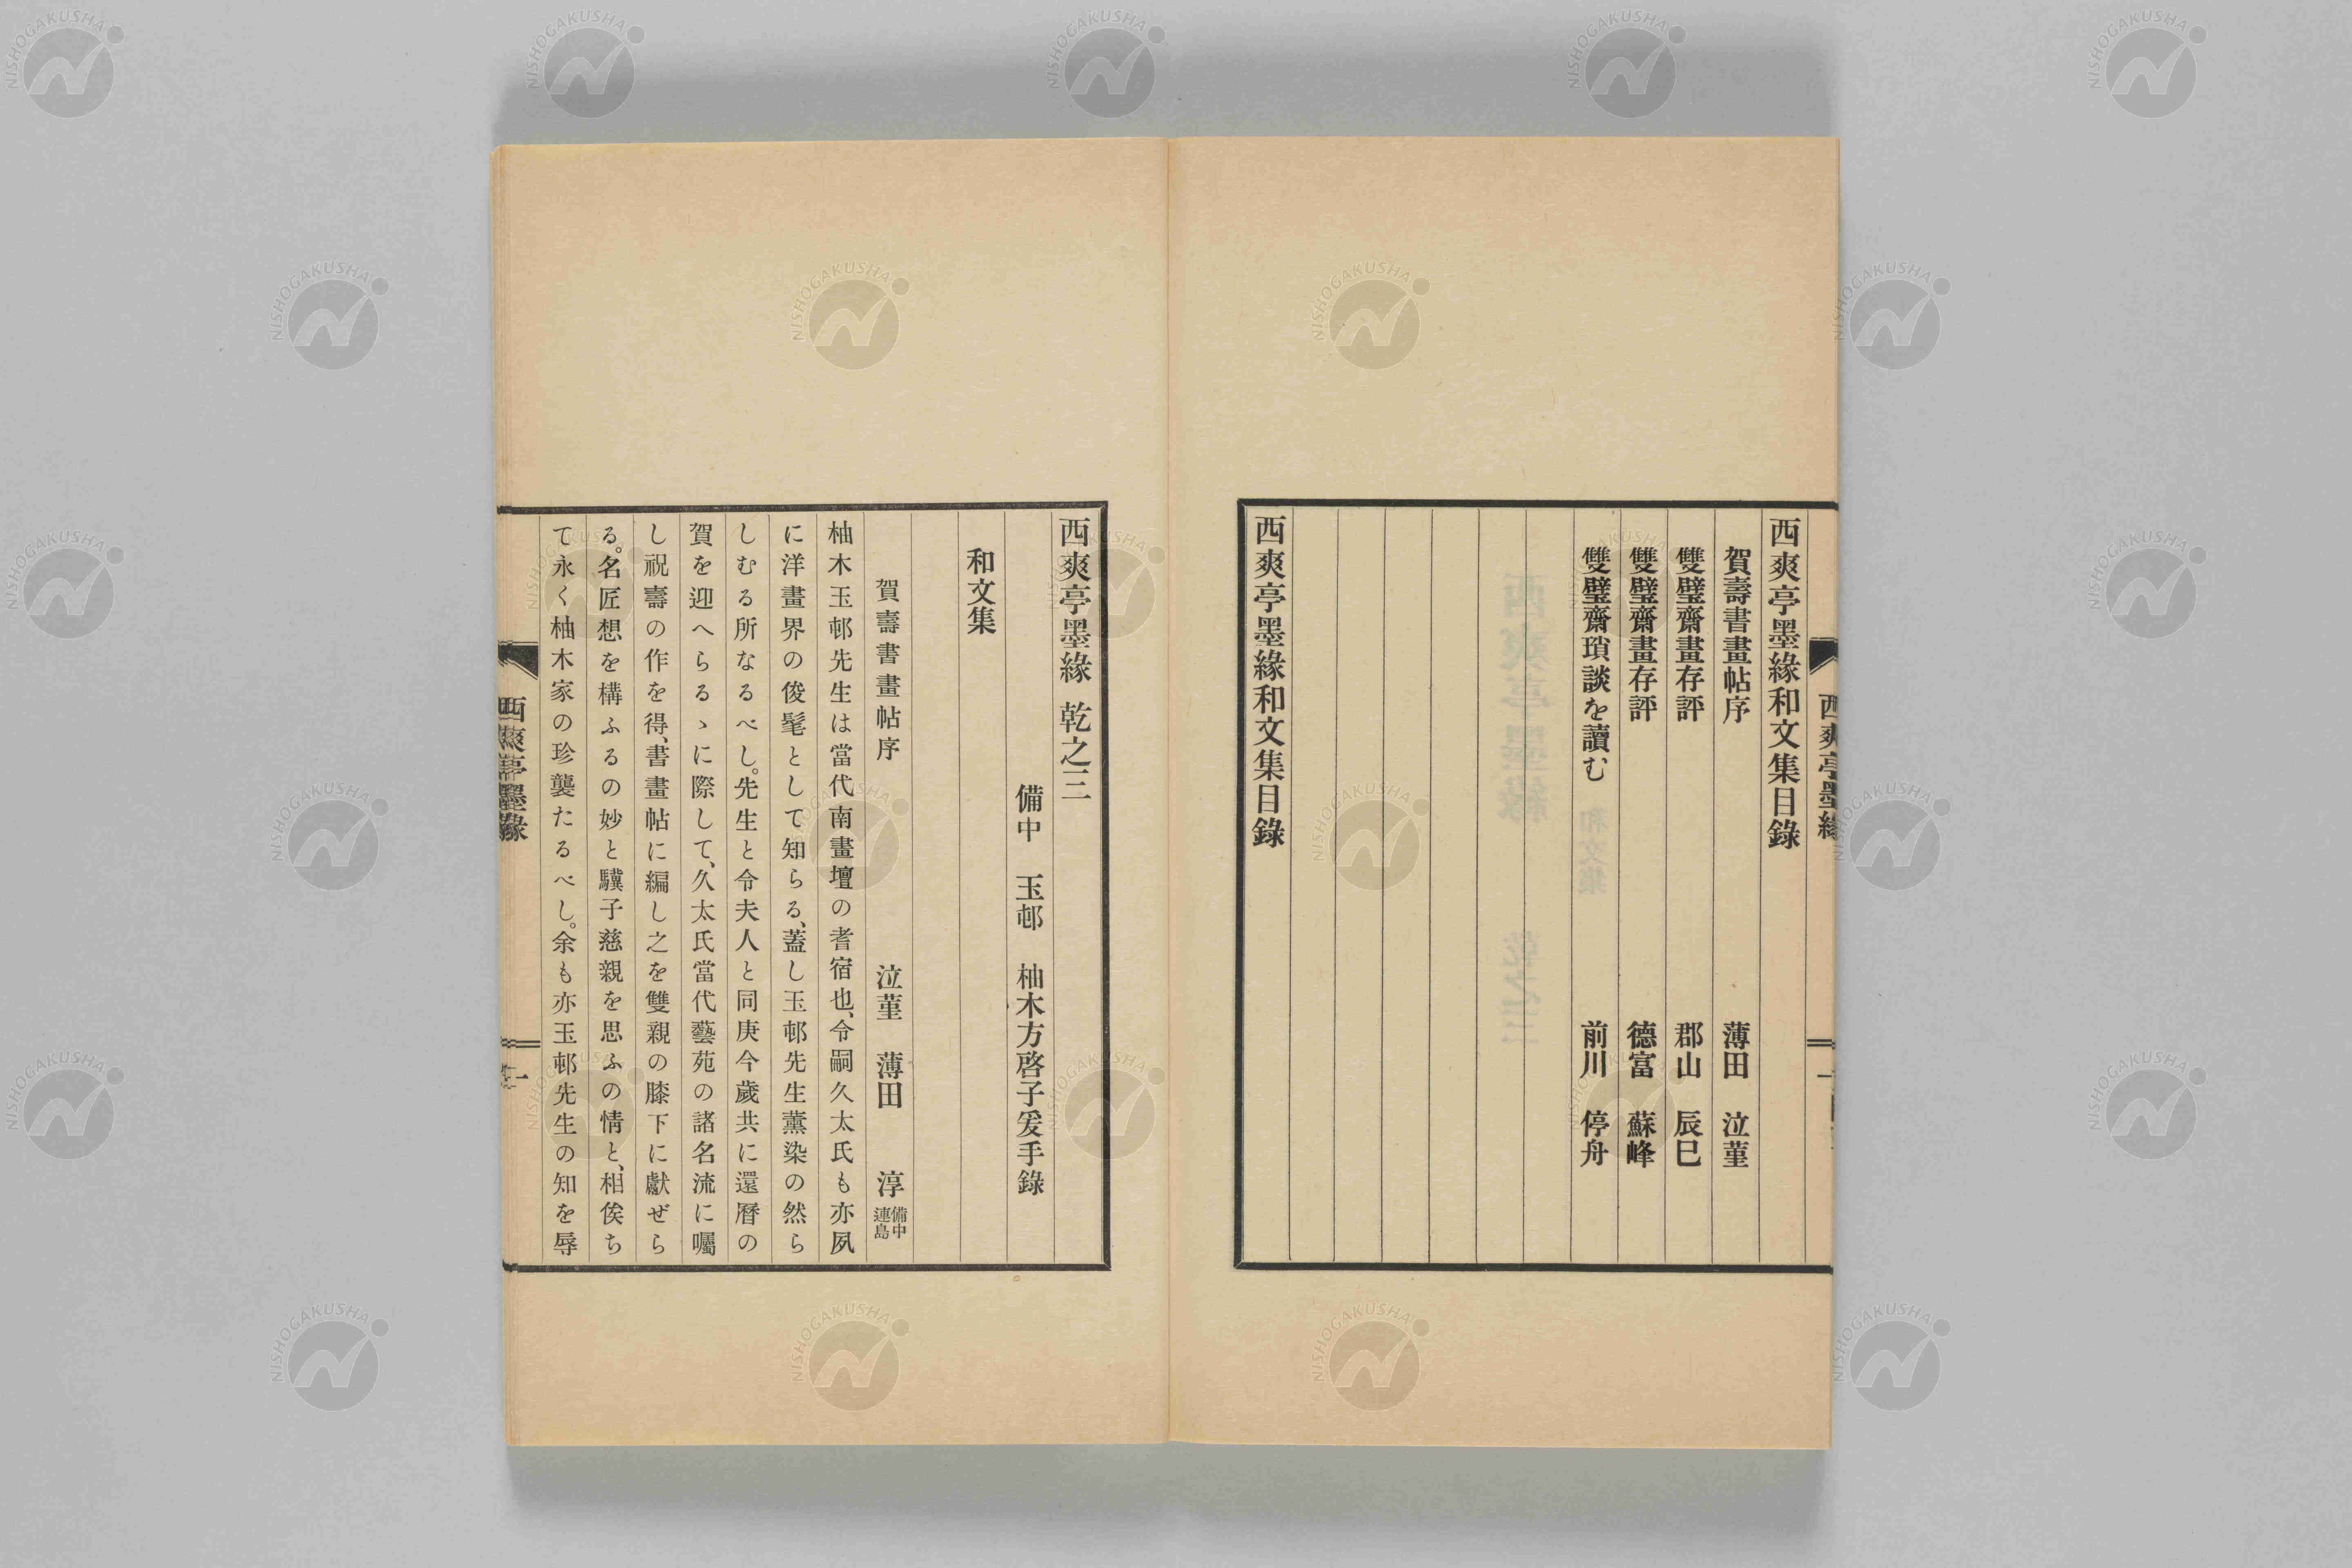 西爽亭墨緣和文集目錄
賀壽書畫帖序　薄田　泣菫
雙璧齋畫存評　郡山　辰巳
雙璧齋畫存評　德富　蘇峰
雙璧齋瑣談を讀む　前川　停舟
西爽亭墨緣和文集目錄
西爽亭墨緣　乾之三
備中　玉邨　柚木方啓子爰手錄
和文集
賀壽書畫帖序　泣菫　薄田　淳 備中連島
柚木玉邨先生は當代南畫壇の耆宿也、令嗣久太氏も亦夙
に洋畫界の俊髦として知らる、蓋し玉邨先生薰染の然ら
しむる所なるべし。先生と令夫人と同庚今歲共に還曆の
賀を迎へらるゝに際して、久太氏當代藝苑の諸名流に囑
し祝壽の作を得、書畫帖に編し之を雙親の膝下に獻ぜら
る。名匠想を構ふるの妙と驥子慈親を思ふの情と、相俟ち
て永く柚木家の珍襲たるべし。余も亦玉邨先生の知を辱
西爽亭墨緣
NISHOGAKUSHA